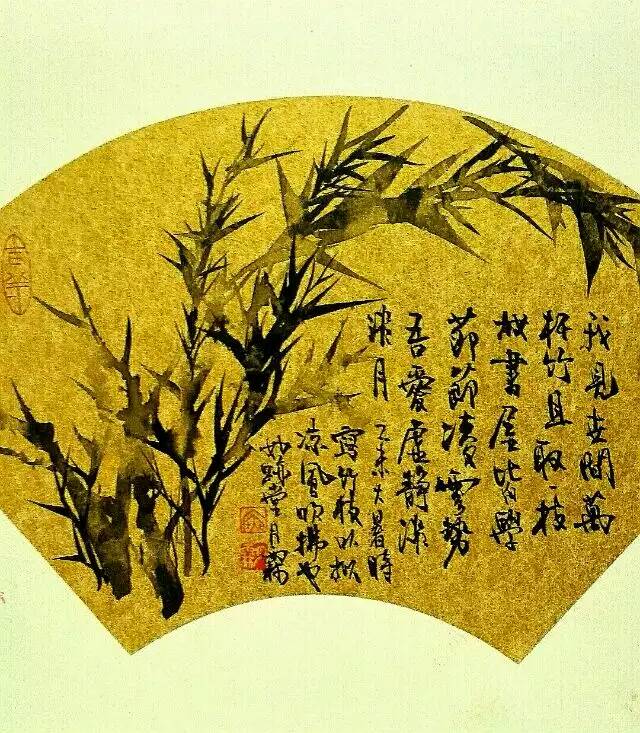 我見世間萬
杆竹且取一枝
書屋皆學
節節凌雲勢
吾愛虛靜
月 乙未大暑時
寫竹枝以擬
涼風吹拂也
妙跡堂月霖